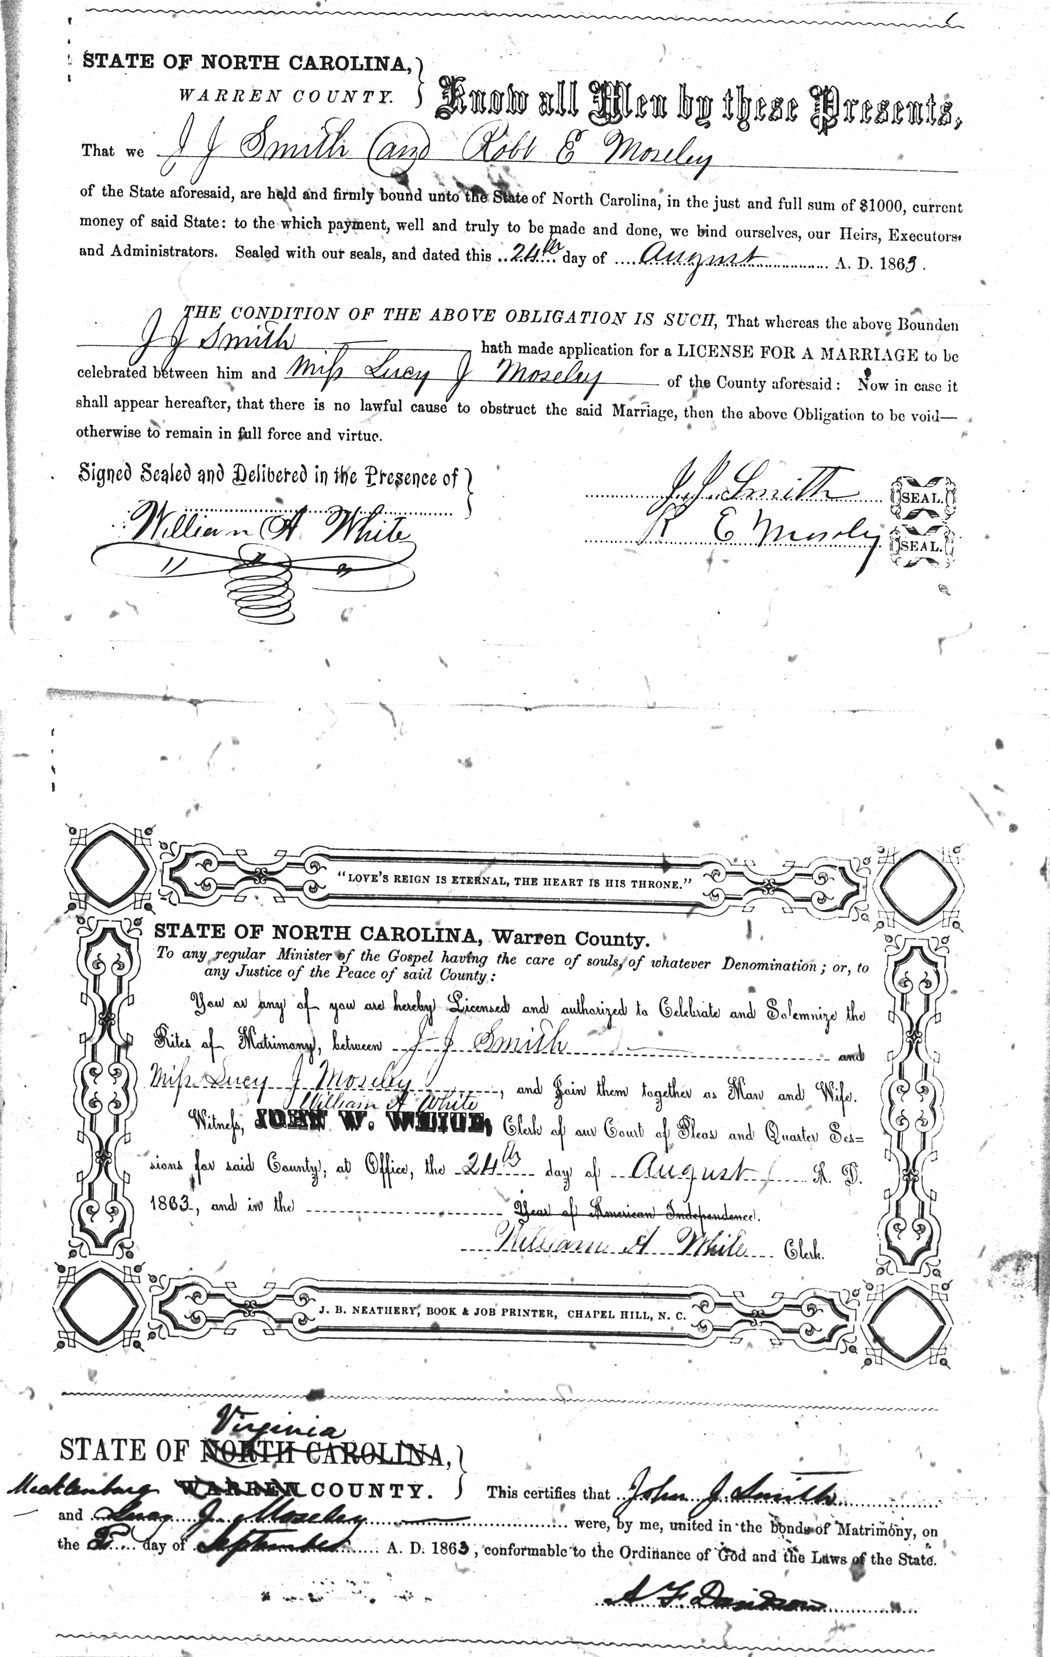 STATE OF NORTH CAROLINA,
WARREN COUNTY.
Know all Men by these Presents,
That we J J Smith and Robt E Moseley
of the State aforesaid, are held and firmly bound unto the State of North Carolina, in the just and full sum of $1000, current
money of said State: to the which payment, well and truly to be made and done, we bind ourselves, our Heirs, Executors,
and Administrators. Sealed with our seals, and dated this 24th day of August A. D. 1863.
THE CONDITION OF THE ABOVE OBLIGATION IS SUCH, That whereas the above Bounden
J J Smith hath made application for a LICENSE FOR A MARRIAGE to be
celebrated between him and Miss Lucy J Moseley of the County aforesaid: Now in case it
shall appear hereafter, that there is no lawful cause to obstruct the said Marriage, then the above Obligation to be void—
otherwise to remain in full force and virtue.
Signed Sealed and Delibered in the Presence of
J. J. Smith SEAL.
William A White
R E Moseley SEAL.
"LOVE'S REIGN IS ETERNAL, THE HEART IS HIS THRONE."
STATE OF NORTH CAROLINA, Warren County.
To any regular Minister of the Gospel having the care of souls, of whatever Denomination; or, to
any Justice of the Peace of said County:
You or any of you are hereby Licensed and authorized to Celebrate and Solemnize the
Rites of Matrimony, between J J Smith and
Miss Lucy J Moseley, and Join them together as Man and Wife.
William A White
Witness, JOHN W. WHITE, Clerk of our Court of Pleas and Quarter Ses=
sions for said County, at Office, the 24th day of August A. D.
1863, and in the Year of American Independence.
William A White Clerk.
J. B. NEATHERY, BOOK & JOB PRINTER, CHAPEL HILL, N. C.
Virginia
STATE OF NORTH CAROLINA,
Mecklenburg WARREN COUNTY. This certifies that John J Smith
and Lucy J. Moseley were, by me, united in the bonds of Matrimony, on
the day of September A. D. 1863, conformable to the Ordinance of God and the Laws of the State.
A F Davidson